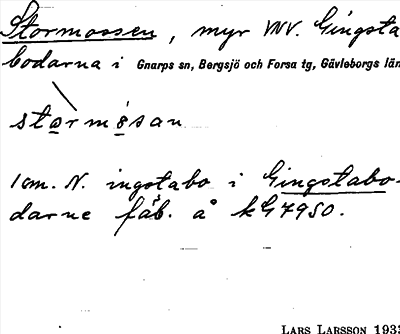 Stormossen, myr VNV. Gingsta
bodarna i Gnarps sn, Bergsjö och Forsa tg, Gävleborgs län
stormósan
1 cm. N. ingstabo i Gingstabo-
darne fäb. å kG7950.
LARS LARSSON 193